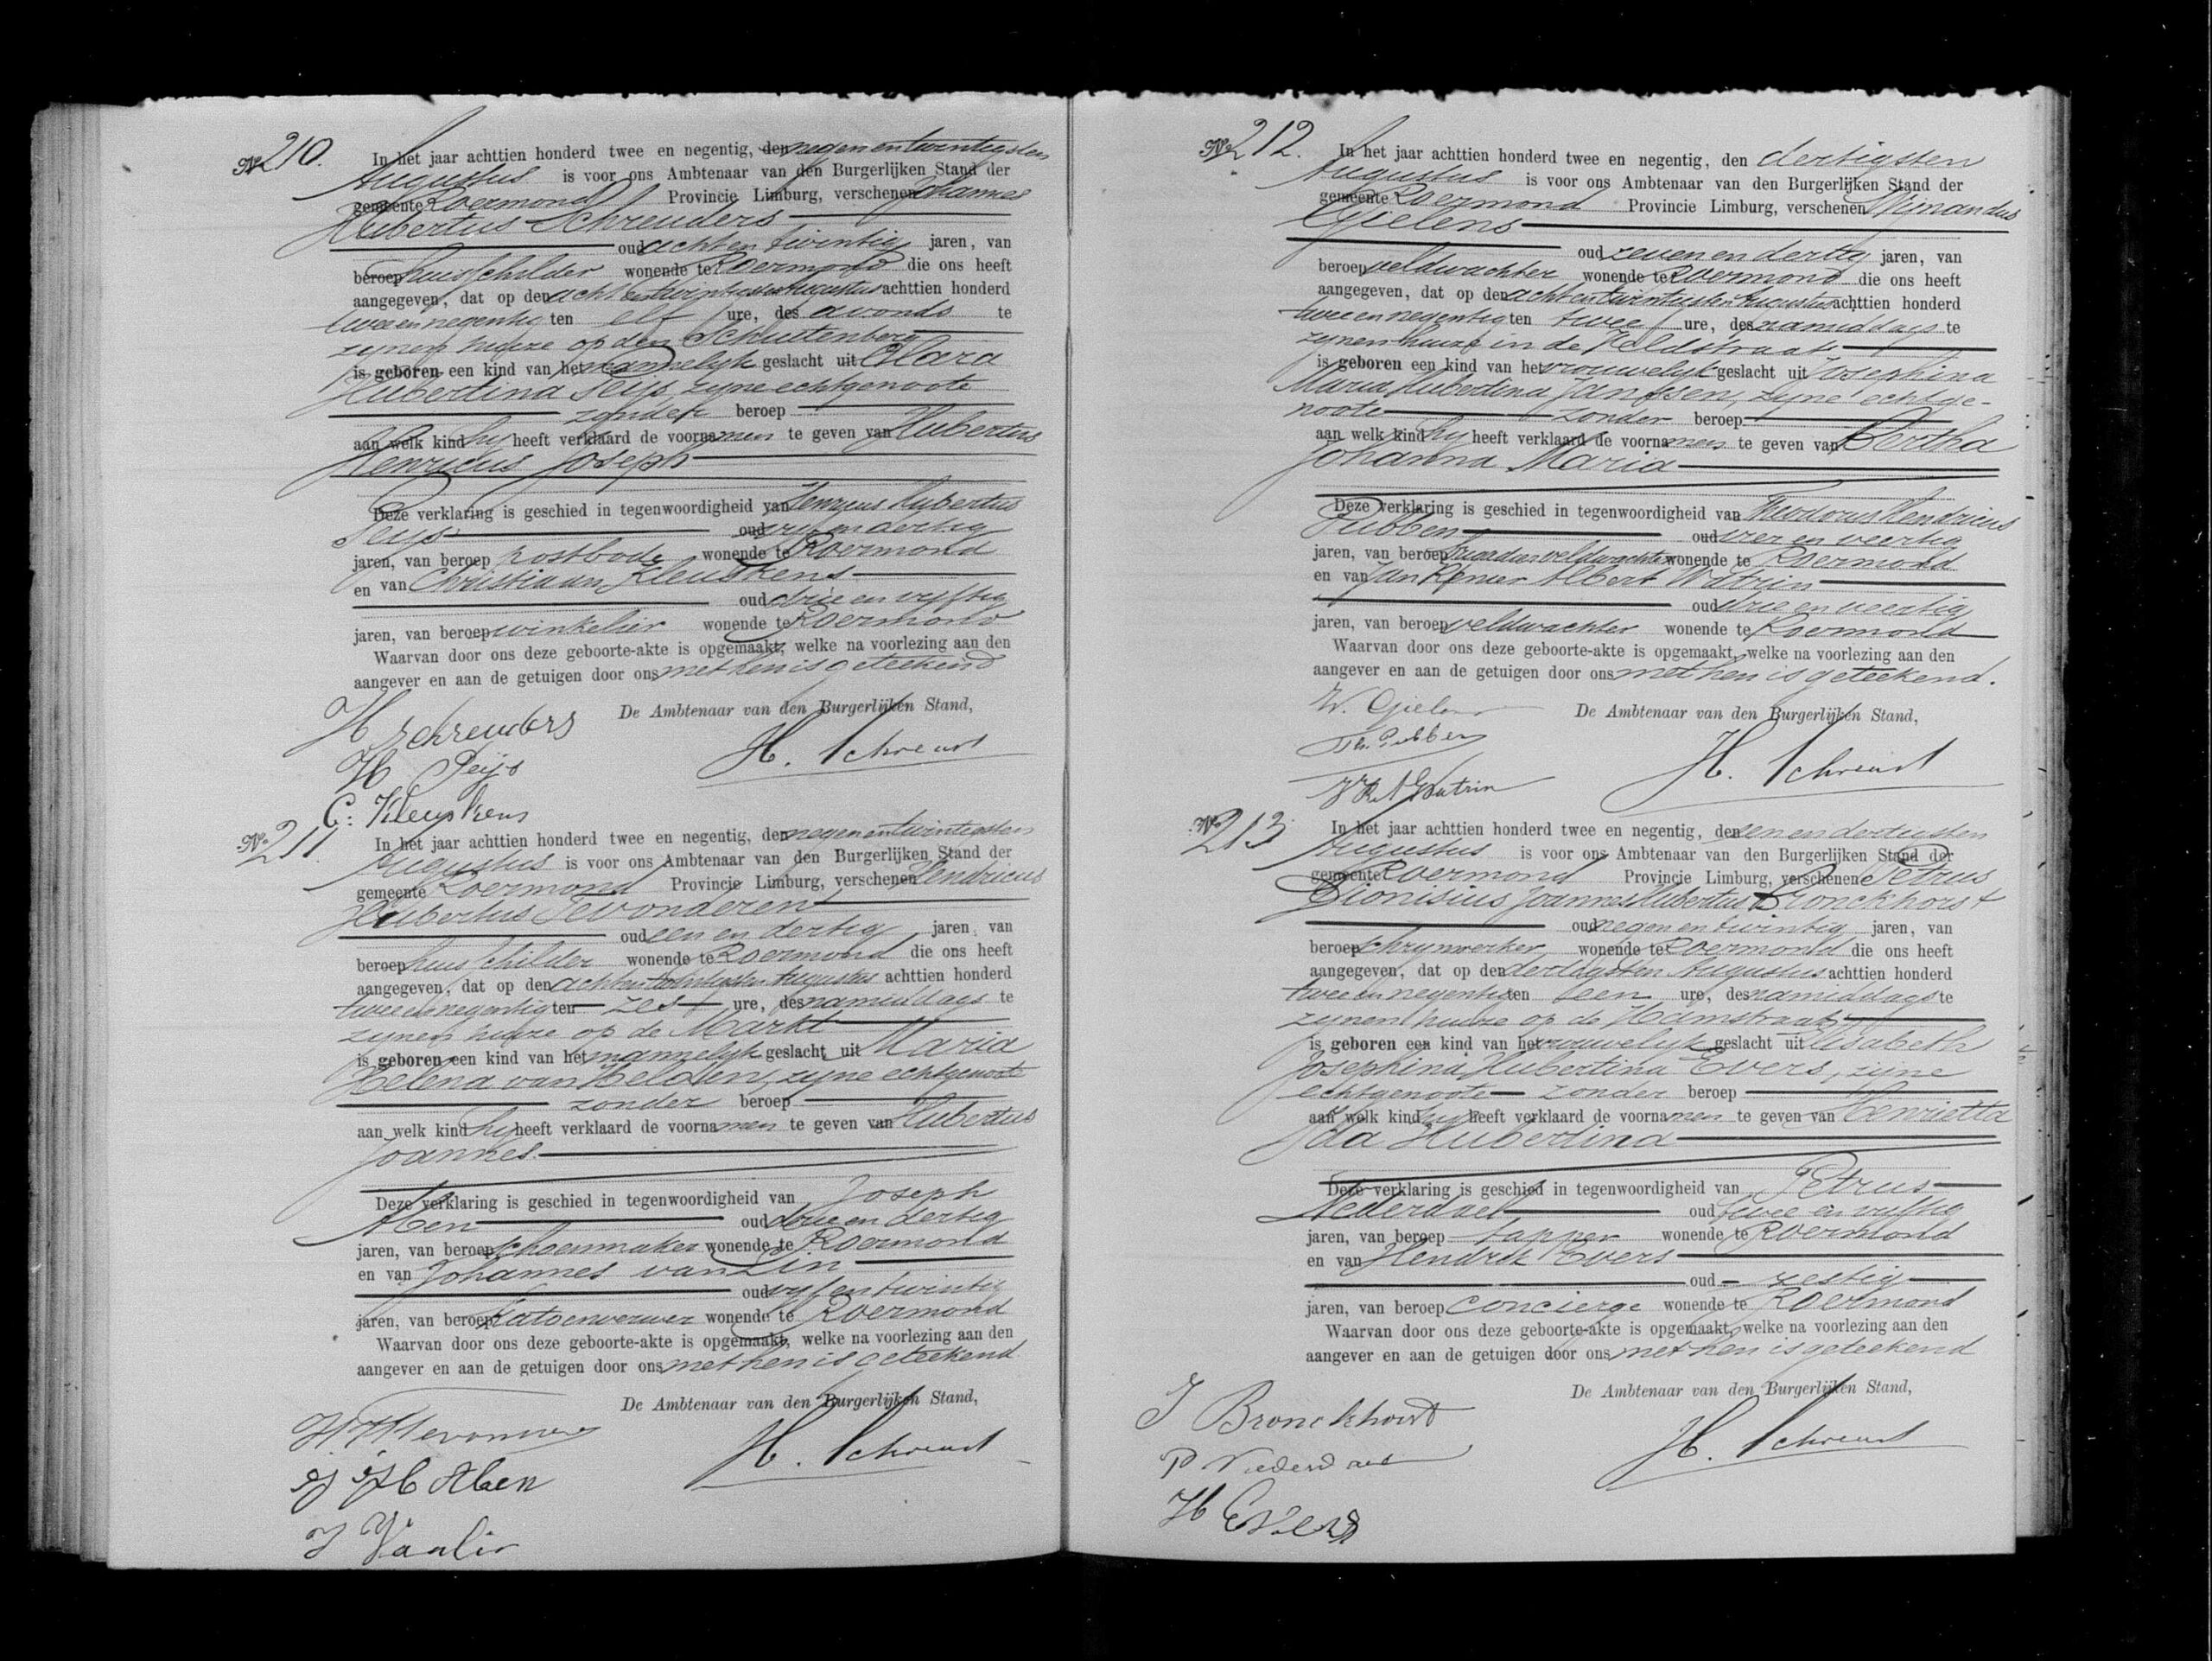 No 210. In het jaar achttien honderd twee en negentig, den negen en twintigsten
Augustus is voor ons Ambtenaar van den Burgerlijken Stand der
gemeente Roermond Provincie Limburg, verschenen Johannes
Hubertus Schreuders
oud acht en twintig jaren, van
beroep huisschilder wonende te Roermond die ons heeft
aangegeven, dat op den acht en twintigsten Augustus achttien honderd
twee en negentig ten elf ure, des avonds te
zijnen huize op den Schuitenberg
is geboren een kind van het mannelijk geslacht uit Clara
Hubertina Peijs, zijne echtgenoote
zonder beroep
aan welk kind hij heeft verklaard de voornamen te geven van Hubertus
Henricus Joseph
Deze verklaring is geschied in tegenwoordigheid van Henricus Hubertus
Peijs oud vijf en dertig
jaren, van beroep postbode wonende te Roermond
en van Christiaan Kleuskens
oud drie en vijftig
jaren, van beroep winkelier wonende te Roermond
Waarvan door ons deze geboorte-akte is opgemaakt, welke na voorlezing aan den
aangever en aan de getuigen door ons met hen is geteekend
De Ambtenaar van den Burgerlijken Stand,
H Schreuders
H. Schreurs
H Peijs
C: Kleuskens
No 211. In het jaar achttien honderd twee en negentig, den negen en twintigsten
Augustus is voor ons Ambtenaar van den Burgerlijken Stand der
gemeente Roermond Provincie Limburg, verschenen Hendricus
Hubertus Tevonderen
oud een en dertig jaren, van
beroep huisschilder wonende te Roermond die ons heeft
aangegeven, dat op den acht en twintigsten Augustus achttien honderd
twee en negentig ten zes ure, des namiddags te
zijnen huize op de Markt
is geboren een kind van het mannelijk geslacht uit Maria
Helena van Helden, zijne echtgenoote
zonder beroep
aan welk kind hij heeft verklaard de voornamen te geven van Hubertus
Joannes.
Deze verklaring is geschied in tegenwoordigheid van Joseph
Aben oud drie en dertig
jaren, van beroep schoenmaker wonende te Roermond
en van Johannes van Lin
oud vijf en twintig
jaren, van beroep katoenverver wonende te Roermond
Waarvan door ons deze geboorte-akte is opgemaakt, welke na voorlezing aan den
aangever en aan de getuigen door ons met hen is geteekend
De Ambtenaar van den Burgerlijken Stand,
H. Schreurs
Aben
J Vanlin
No 212. In het jaar achttien honderd twee en negentig, den dertigsten
Augustus is voor ons Ambtenaar van den Burgerlijken Stand der
gemeente Roermond Provincie Limburg, verschenen Wijnandus
Gielens
oud zeven en dertig jaren, van
beroep veldwachter wonende te Roermond die ons heeft
aangegeven, dat op den acht en twintigsten Augustus achttien honderd
twee en negentig ten twee ure, des namiddags te
zijnen huize in de Veldstraat
is geboren een kind van het vrouwelijk geslacht uit Josephina
Maria Hubertina Janssen, zijne echtge-
noote zonder beroep
aan welk kind hij heeft verklaard de voornamen te geven van Bertha
Johanna Maria
Deze verklaring is geschied in tegenwoordigheid van Theodorus Hendricus
Gubben oud vier en veertig
jaren, van beroep wonende te Roermond
en van Jan Albert Watrin
oud drie en veertig
jaren, van beroep veldwachter wonende te Roermond
Waarvan door ons deze geboorte-akte is opgemaakt, welke na voorlezing aan den
aangever en aan de getuigen door ons met hen is geteekend.
W. Gielens De Ambtenaar van den Burgerlijken Stand,
Th. Gubben
H. Schreurs
Watrin
No 213 In het jaar achttien honderd twee en negentig, den een en dertigsten
Augustus is voor ons Ambtenaar van den Burgerlijken Stand der
gemeente Roermond Provincie Limburg, verschenen Petrus
Dionisius Joannes Hubertus Bronckhorst
oud negen en twintig jaren, van
beroep schrijnwerker wonende te Roermond die ons heeft
aangegeven, dat op den dertigsten Augustus achttien honderd
twee en negentig ten een ure, des namiddags te
zijnen huize op de Hamstraat
is geboren een kind van het vrouwelijk geslacht uit Elisabeth
Josephina Hubertina Evers, zijne
echtgenoote zonder beroep
aan welk kind hij heeft verklaard de voornamen te geven van Henrietta
Ida Hubertina
Deze verklaring is geschied in tegenwoordigheid van Petrus
Nederdael oud twee en vijftig
jaren, van beroep tapper wonende te Roermond
en van Hendrik Evers
oud zestig
jaren, van beroep concierge wonende te Roermond
Waarvan door ons deze geboorte-akte is opgemaakt, welke na voorlezing aan den
aangever en aan de getuigen door ons met hen is geteekend
De Ambtenaar van den Burgerlijken Stand,
J Bronckhorst
H. Schreurs
P Nederdael
H Evers